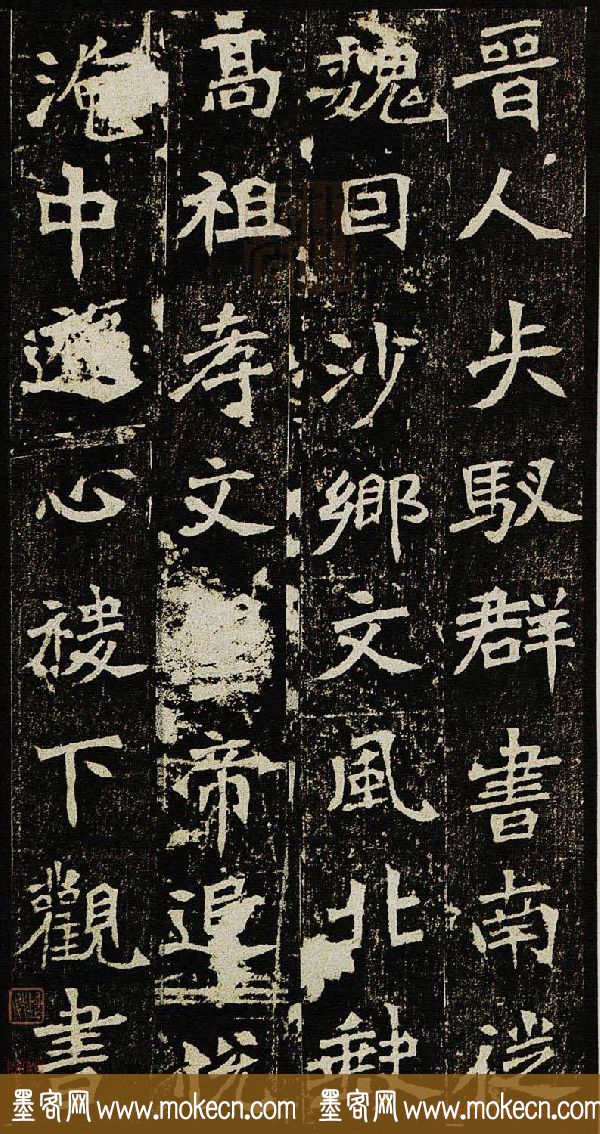 晉人失馭群書南徙
魏因沙鄉文風北
高祖孝文帝追悅
淹中遊心稷下觀書
墨客网 www.mokecn.com 墨客网 www.mokecn.com